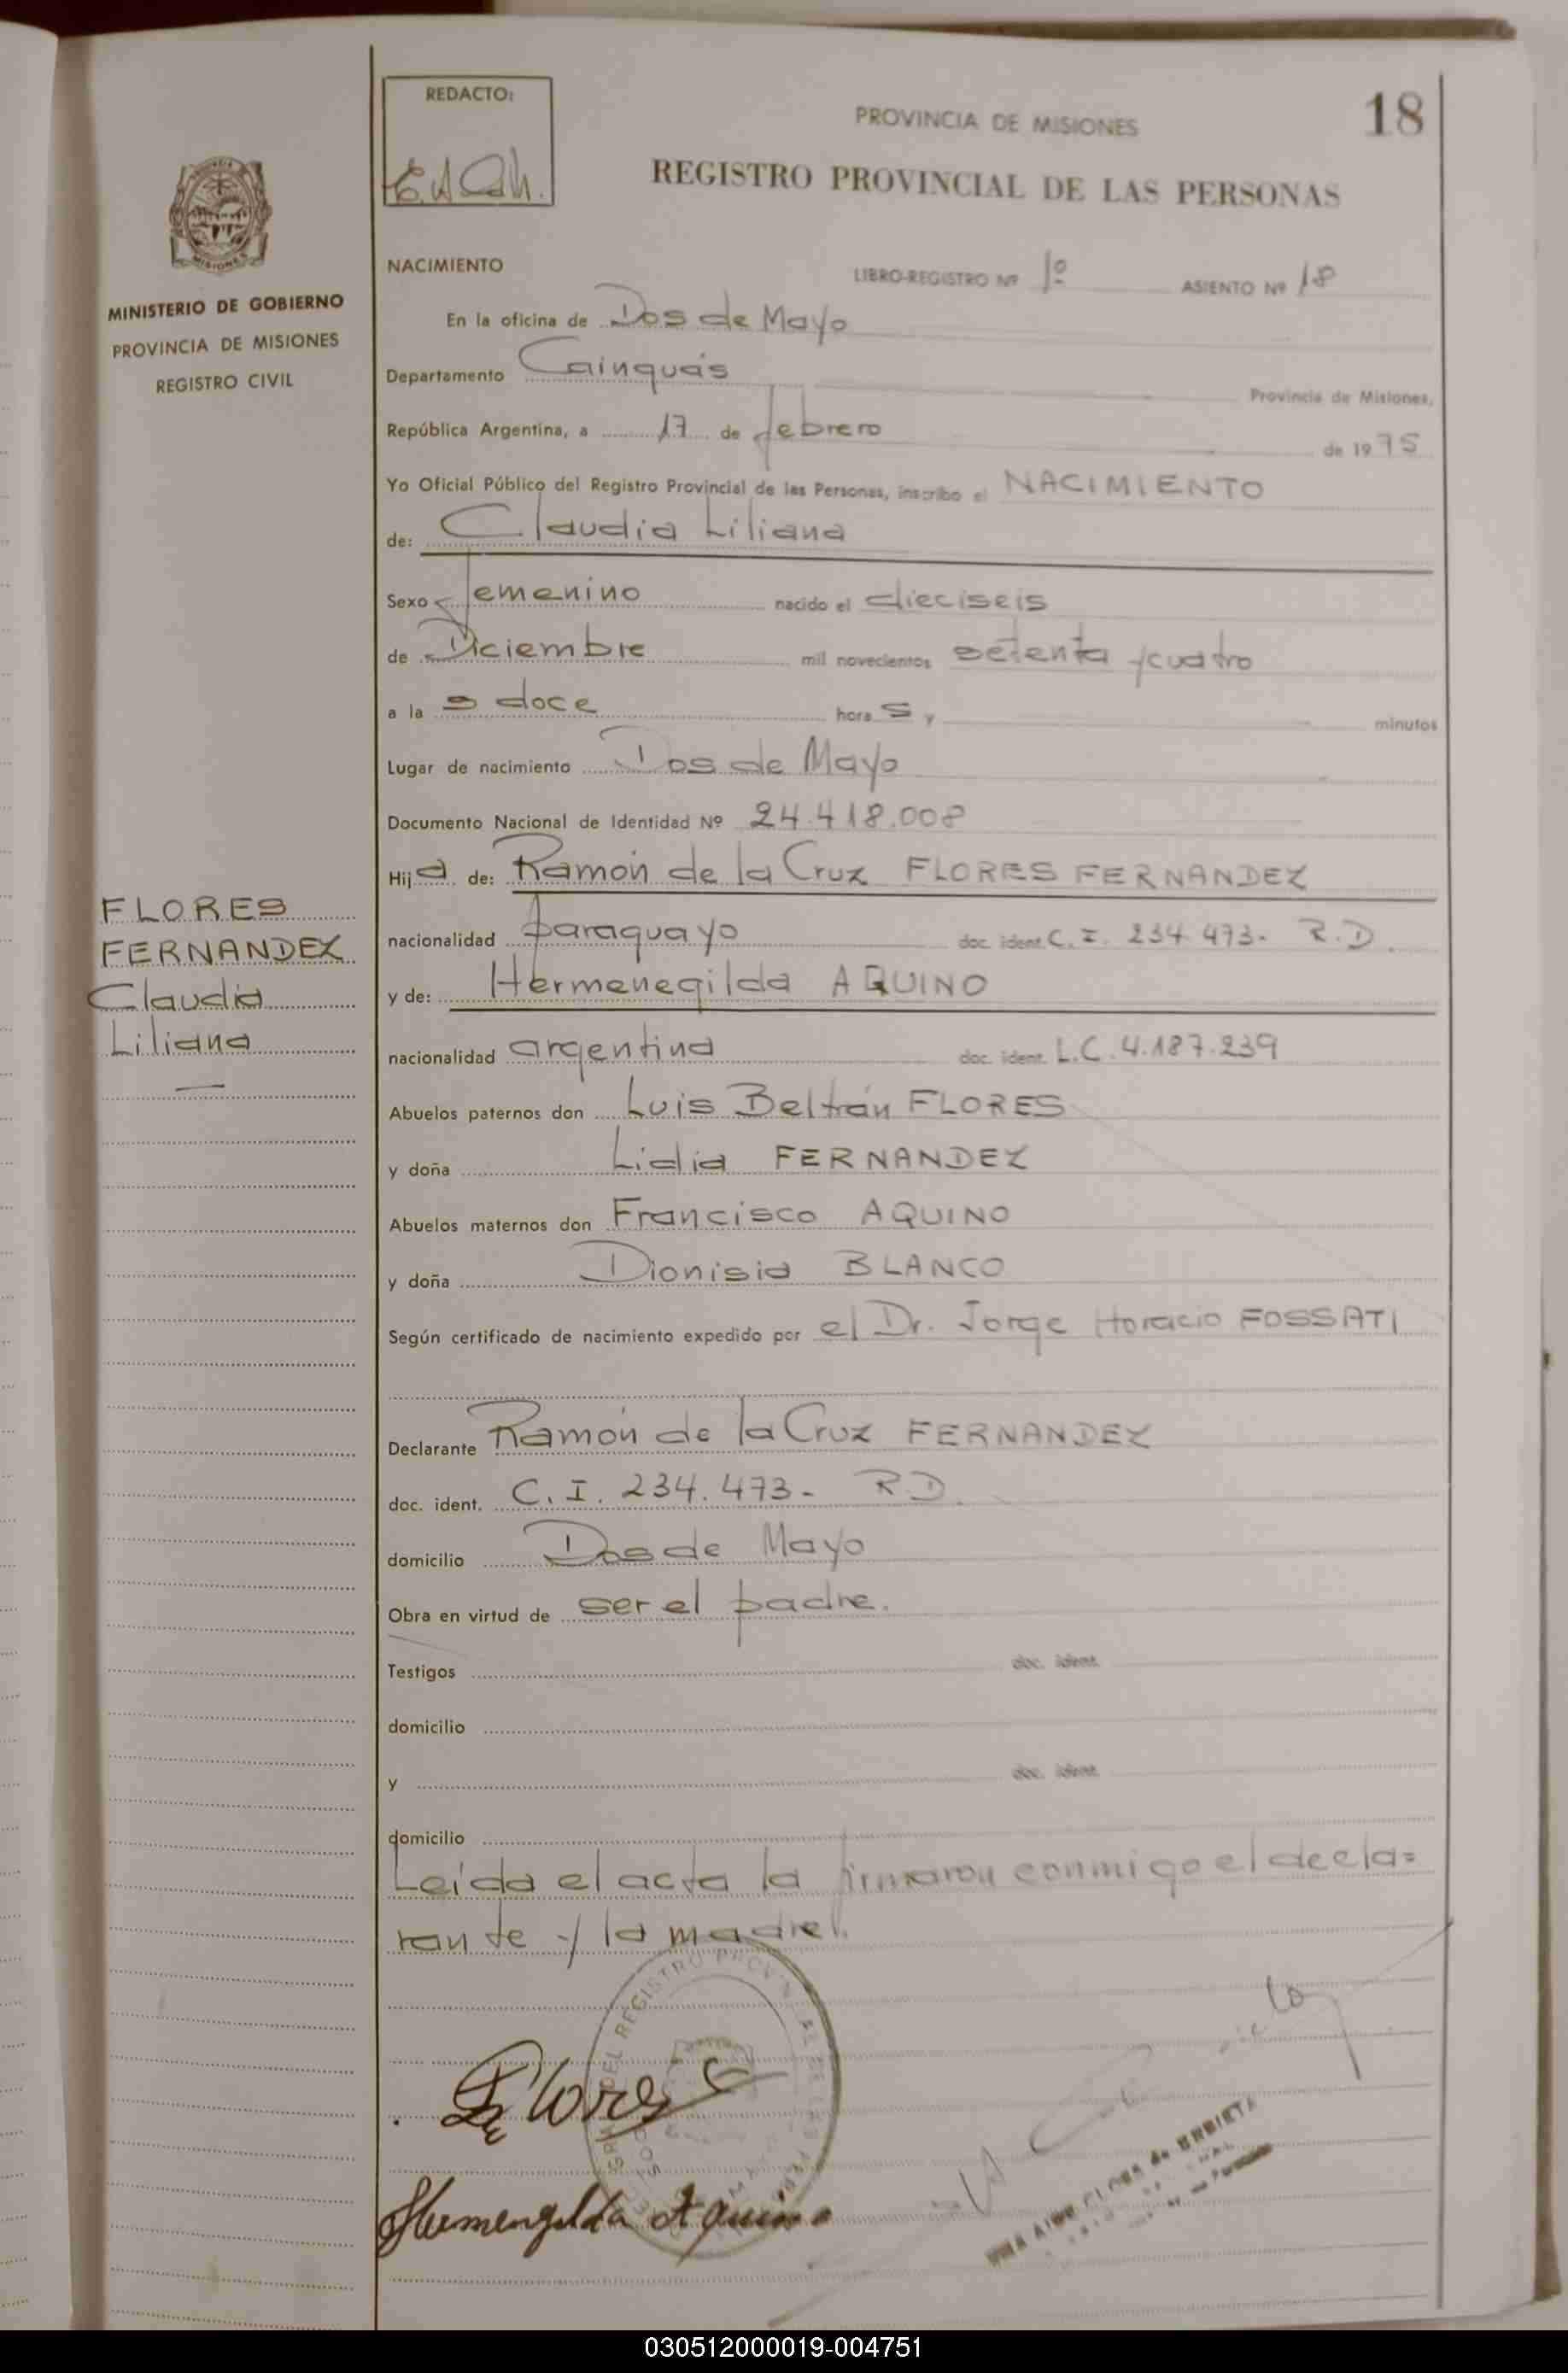 REDACTO:
PROVINCIA DE MISIONES
18
REGISTRO PROVINCIAL DE LAS PERSONAS
MISIONES
MINISTERIO DE GOBIERNO
PROVINCIA DE MISIONES
REGISTRO CIVIL
NACIMIENTO
LIBRO-REGISTRO Nº 1º ASIENTO Nº 18
En la oficina de Dos de Mayo
Departamento Cainguás Provincia de Misiones,
República Argentina, a 17 de febrero de 1975
Yo Oficial Público del Registro Provincial de las Personas, inscribo el NACIMIENTO
de: Claudia Liliana
Sexo femenino nacido el dieciseis
de Diciembre mil novecientos setenta y cuatro
a la s doce hora s y minutos
Lugar de nacimiento Dos de Mayo
Documento Nacional de Identidad Nº 24.418.008
Hij a de: Ramón de la Cruz FLORES FERNANDEZ
FLORES
FERNANDEZ
Claudia
Liliana
nacionalidad paraguayo doc. ident. C. I. 234.473- R.D.
y de: Hermenegilda AQUINO
nacionalidad argentina doc. ident. L.C. 4.187.239
Abuelos paternos don Luis Beltrán FLORES
y doña Lidia FERNANDEZ
Abuelos maternos don Francisco AQUINO
y doña Dionisia BLANCO
Según certificado de nacimiento expedido por el Dr. Jorge Horacio FOSSATI
Declarante Ramón de la Cruz FERNANDEZ
doc. ident. C. I. 234.473- R.D.
domicilio Dos de Mayo
Obra en virtud de ser el padre.
Testigos doc. ident.
domicilio
y doc. ident.
domicilio
Leída el acta la firmaron conmigo el decla=
rante y la madre.
DEL REGISTRO PROVIN
Flores
Hermengilda Aquino
de URBIETA
030512000019-004751